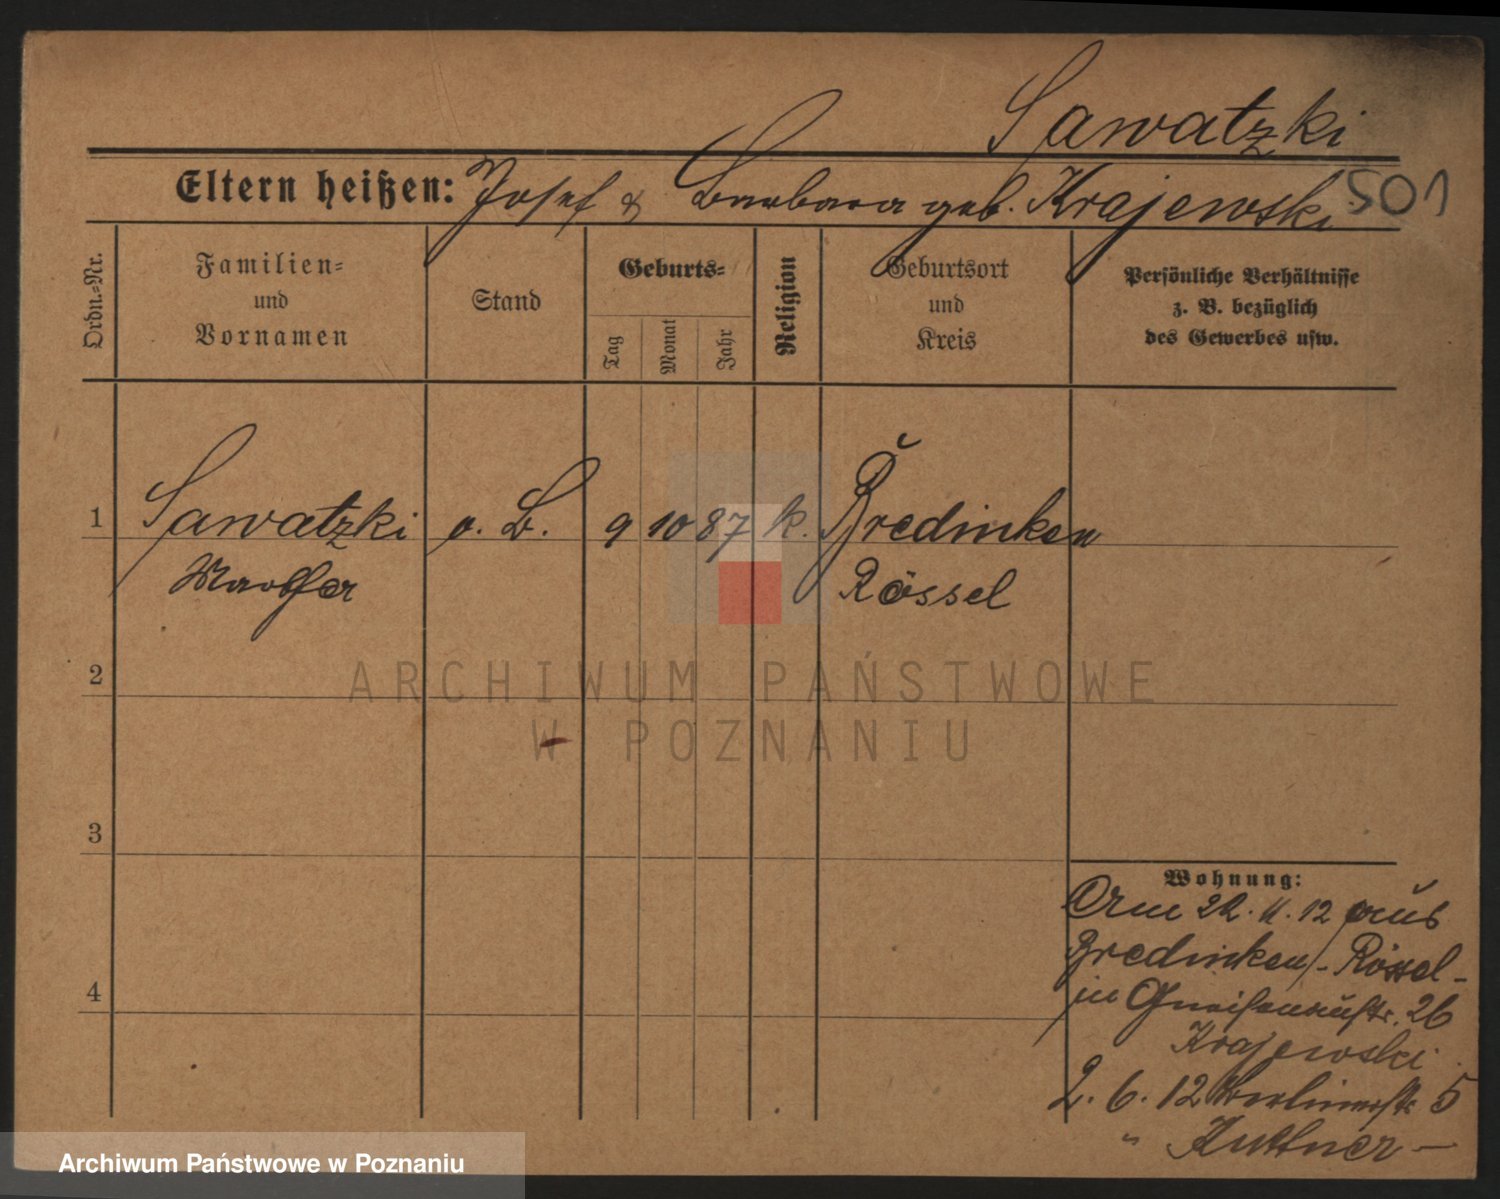 Sawatzki
Eltern heißen: Josef & Barbara geb. Krajewski 501
Ordn.-Nr.
Familien-
und
Vornamen
Stand
Geburts-
Tag
Monat
Jahr
Religion
Geburtsort
und
Kreis
Persönliche Verhältnisse
z. B. bezüglich
des Gewerbes usw.
1 Sawatzki o. B. 9 10 87 k. Bredinken
Rössel
2
3
4
Wohnung:
Am 22. 4. 12 aus
Bredinken - Rössel -
in Gneisenaustr. 26
Krajewski
2. 6. 12 Berlinerstr. 5
" Kuttner -
ARCHIWUM PAŃSTWOWE
W POZNANIU
Archiwum Państwowe w Poznaniu